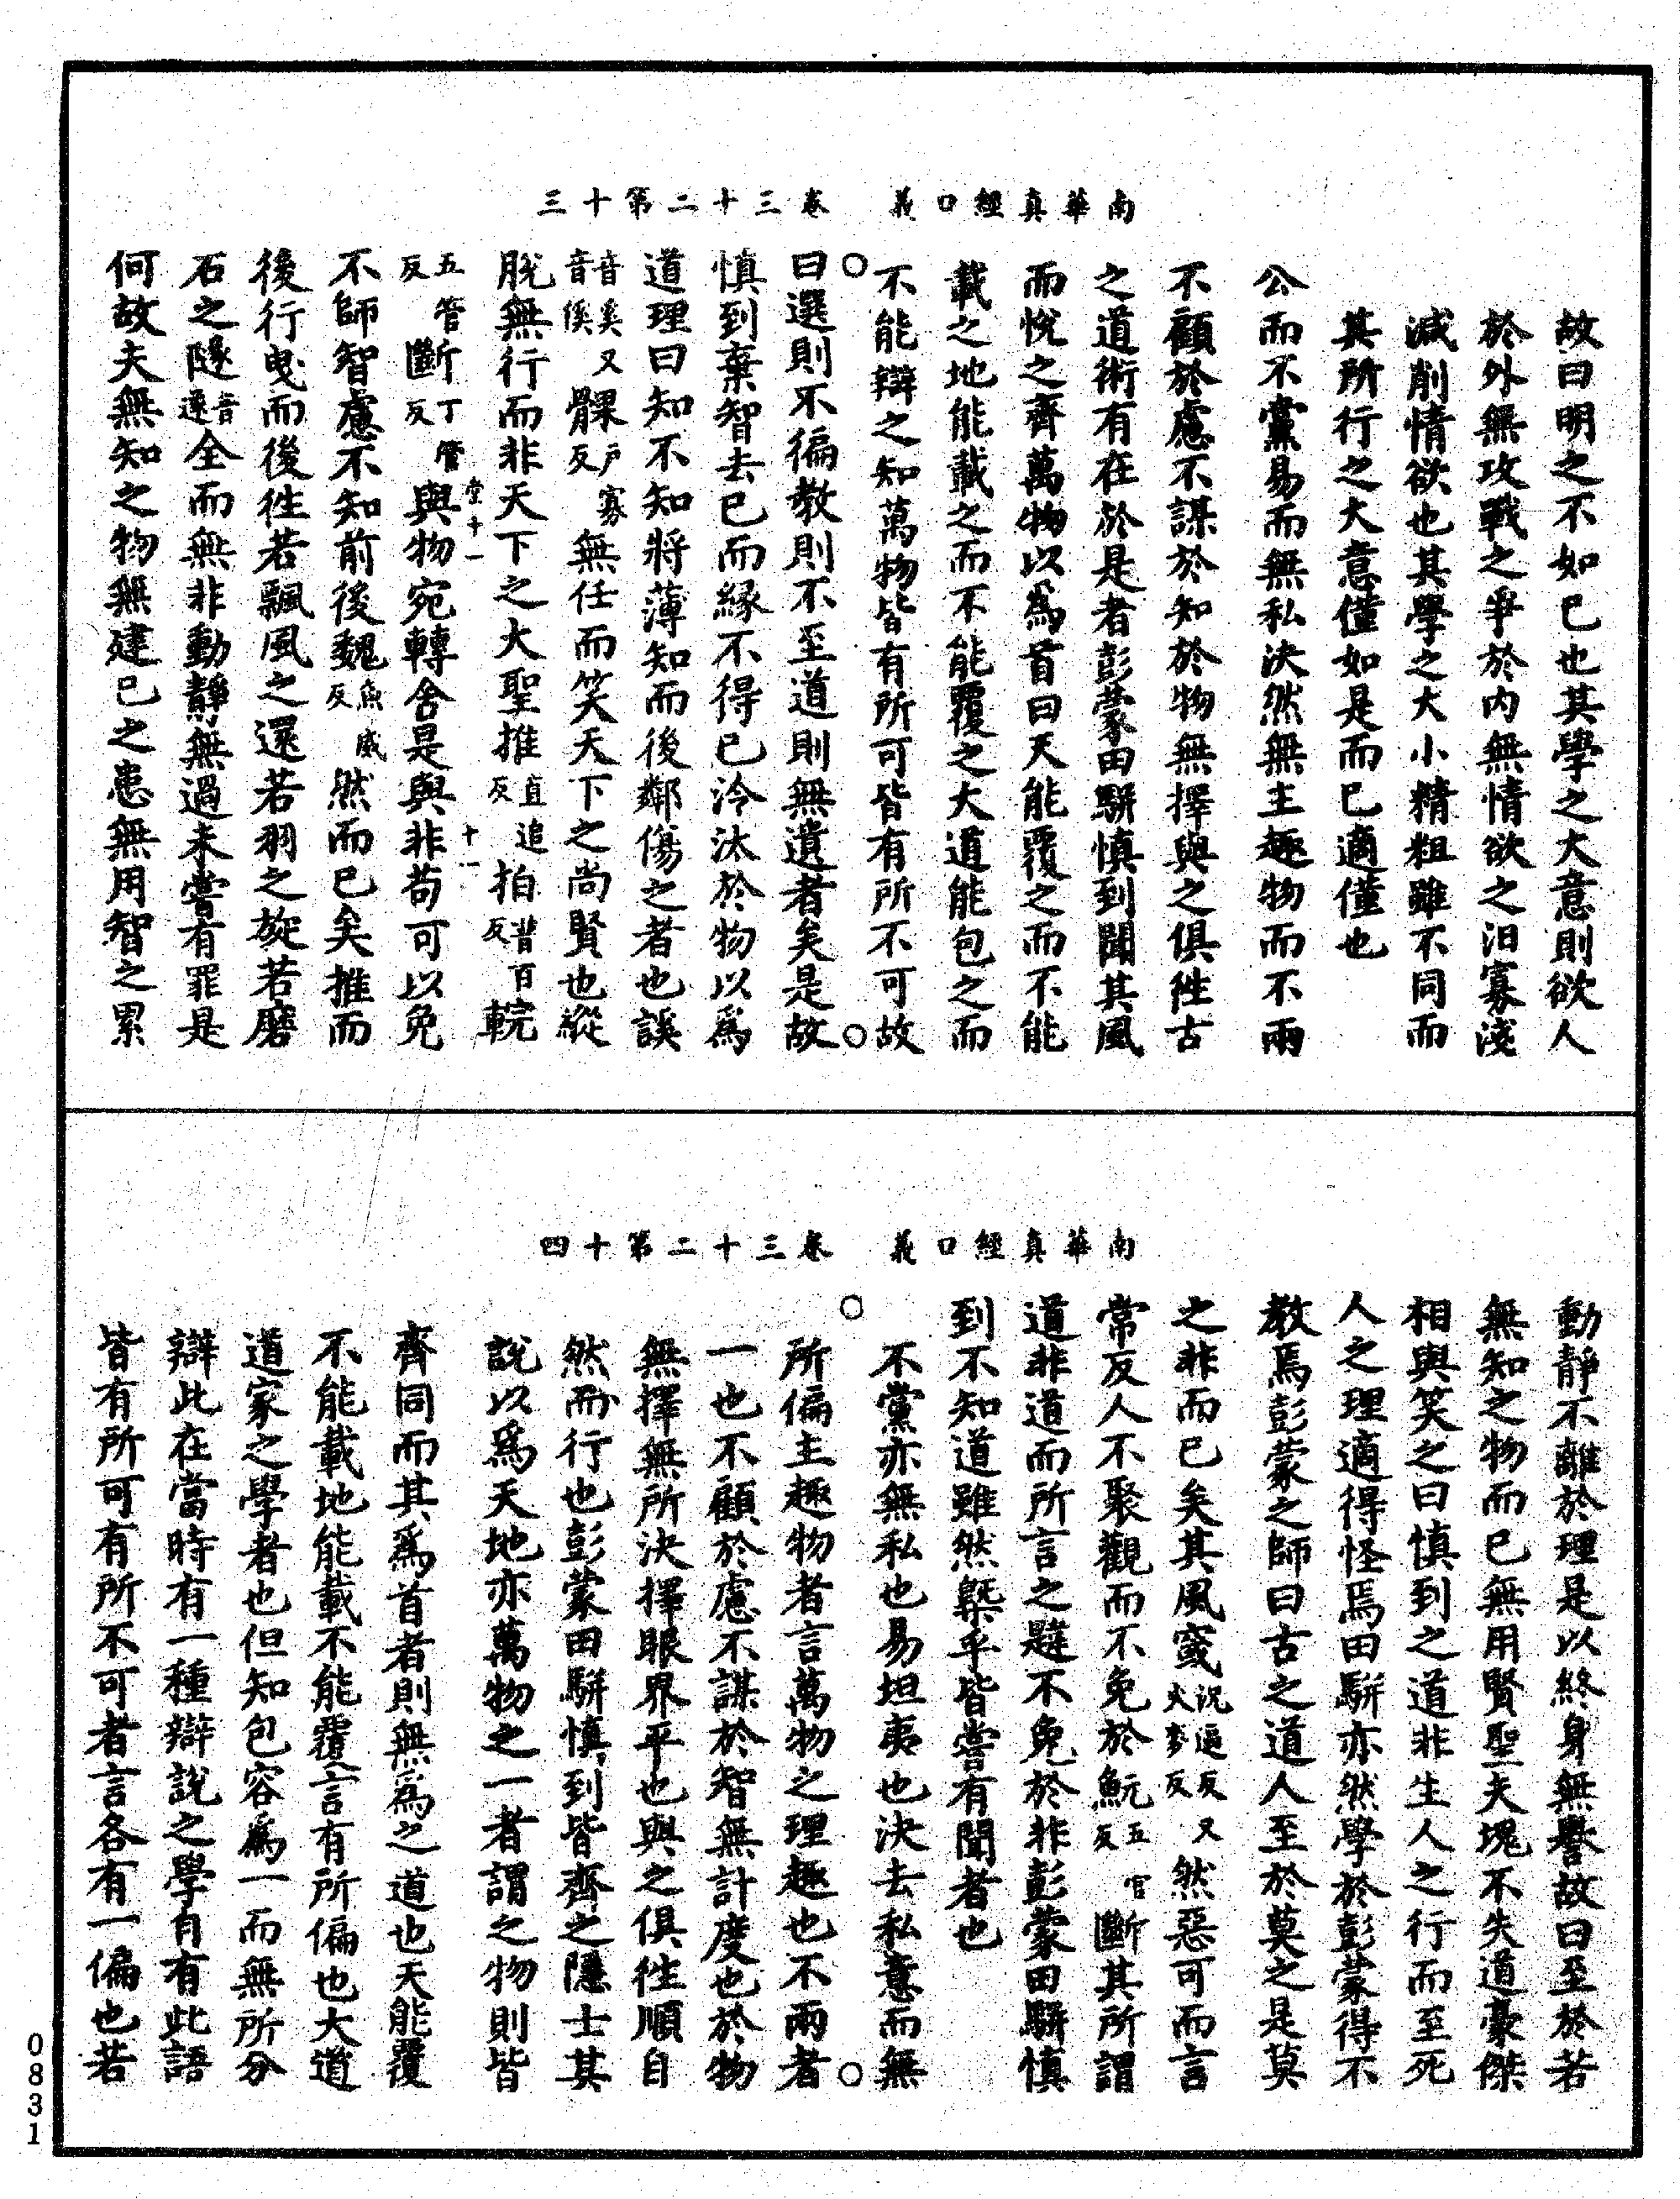 南華真經口義　卷三十二第十三
故曰明之不如已也其學之大意則欲人
於外無攻戰之爭於内無情欲之汨寡淺
減削情欲也其學之大小精粗雖不同而
其所行之大意僅如是而已適僅也
公而不黨易而無私決然無主趣物而不兩
不顧於慮不謀於知於物無擇與之俱徃古
之道術有在於是者彭蒙田駢慎到聞其風
而悅之齊萬物以爲首曰天能覆之而不能
載之地能載之而不能覆之大道能包之而
不能辯之知萬物皆有所可皆有所不可故
曰選則不徧教則不至道則無遺者矣是故
慎到棄智去已而緣不得已泠汰於物以爲
道理曰知不知將薄知而後鄰傷之者也謑
音奚又音傒髁戶寡反無任而笑天下之尚賢也縱
脫無行而非天下之大聖推直追反拍普百反輐
五管反斷丁管反與物宛轉舍是與非苟可以免
堂十一　十一
不師智慮不知前後魏魚威反然而已矣推而
後行曳而後徃若飄風之還若羽之旋若磨
石之隧音遂全而無非動靜無過未嘗有罪是
何故夫無知之物無建已之患無用智之累
南華真經口義　卷三十二第十四
動靜不離於理是以終身無譽故曰至於若
無知之物而已無用賢聖夫塊不失道豪傑
相與笑之曰慎到之道非生人之行而至死
人之理適得怪焉田駢亦然學於彭蒙得不
教焉彭蒙之師曰古之道人至於莫之是莫
之非而已矣其風窢況逼反又火麥反然惡可而言
常反人不聚觀而不免於魭五官反斷其所謂
道非道而所言之韙不免於非彭蒙田駢慎
到不知道雖然槩乎皆嘗有聞者也
不黨亦無私也易坦夷也決去私意而無
所偏主趣物者言萬物之理趣也不兩者
一也不顧於慮不謀於智無計度也於物
無擇無所決擇眼界平也與之俱徃順自
然而行也彭蒙田駢慎到皆齊之隱士其
說以爲天地亦萬物之一者謂之物則皆
齊同而其爲首者則無爲之道也天能覆
不能載地能載不能覆言有所偏也大道
道家之學者也但知包容爲一而無所分
辯此在當時有一種辯說之學自有此語
皆有所可有所不可者言各有一偏也若
0831